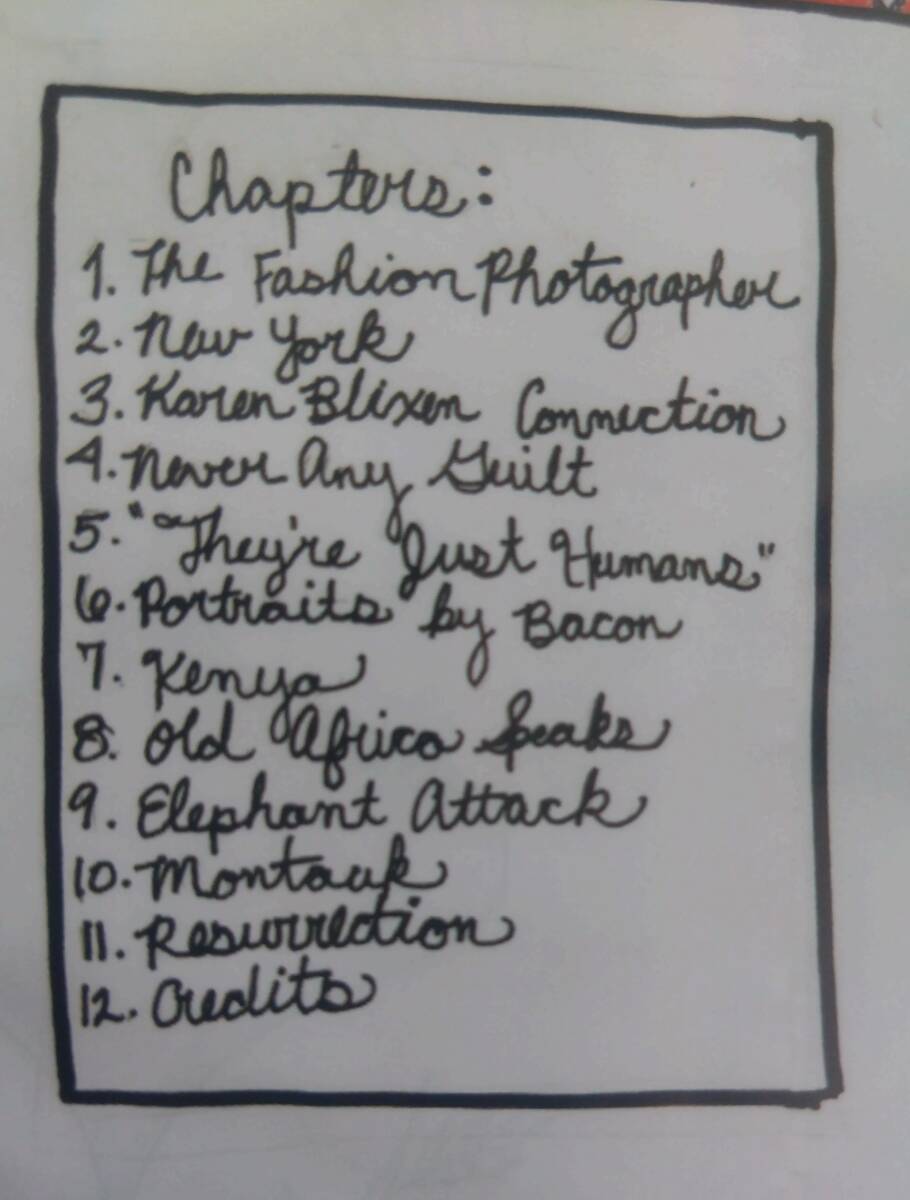 Chapters:
1. The Fashion Photographer
2. New York
3. Karen Blixen Connection
4. Never Any Guilt
5. "They're Just Humans"
6. Portraits by Bacon
7. Kenya
8. Old Africa Speaks
9. Elephant Attack
10. Montauk
11. Resurrection
12. Credits